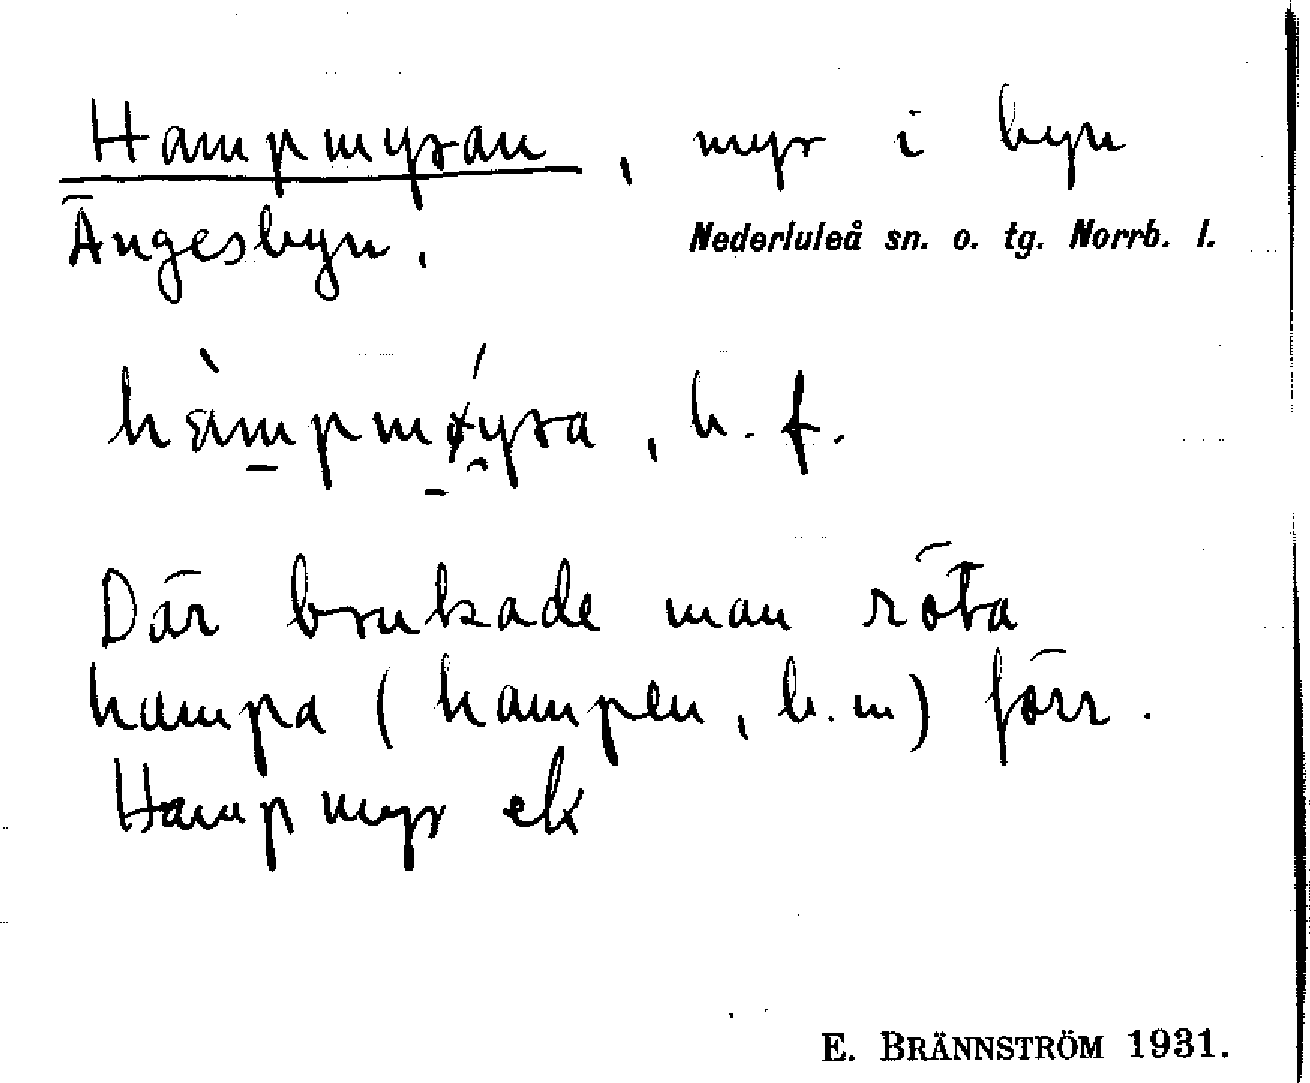 Hampmyran, myr i byn
Ängesbyn. Nederluleå sn. o. tg. Norrb. l.
b. f.
Där brukade man röta
hampa (hampen, b. m) förr.
Hampmyr ek
E. BRÄNNSTRÖM 1931.